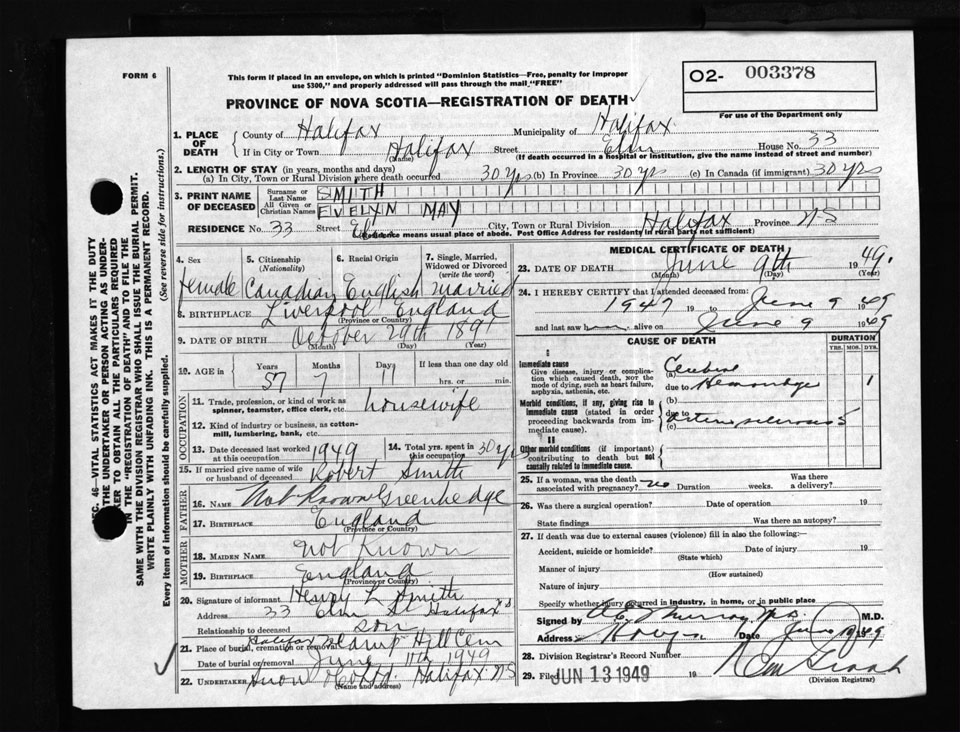 FORM 6
This form if placed in an envelope, on which is printed "Dominion Statistics—Free, penalty for improper
use $300," and properly addressed will pass through the mail "FREE"
PROVINCE OF NOVA SCOTIA—REGISTRATION OF DEATH
O2- 003378
For use of the Department only
SEC. 46—VITAL STATISTICS ACT MAKES IT THE DUTY
THE UNDERTAKER OR PERSON ACTING AS UNDER-
KER TO OBTAIN ALL THE PARTICULARS REQUIRED
IN THE "REGISTRATION OF DEATH" AND TO FILE THE
SAME WITH THE DIVISION REGISTRAR WHO SHALL ISSUE THE BURIAL PERMIT.
WRITE PLAINLY WITH UNFADING INK. THIS IS A PERMANENT RECORD.
Every item of information should be carefully supplied. (See reverse side for instructions.)
1. PLACE OF DEATH County of Halifax Municipality of Halifax
If in City or Town Halifax (Name) Street Elm House No. 33
(If death occurred in a hospital or institution, give the name instead of street and number)
2. LENGTH OF STAY (in years, months and days)
(a) In City, Town or Rural Division where death occurred 30 yrs (b) In Province 30 yrs (c) In Canada (if immigrant) 30 yrs
3. PRINT NAME OF DECEASED Surname or Last Name SMITH
All Given or Christian Names EVELYN MAY
RESIDENCE No. 33 Street Elm City, Town or Rural Division Halifax Province N-S
(Residence means usual place of abode. Post Office Address for residents in rural parts not sufficient)
4. Sex 5. Citizenship (Nationality) 6. Racial Origin 7. Single, Married, Widowed or Divorced (write the word)
Female Canadian English married
8. BIRTHPLACE Liverpool England
(Province or Country)
9. DATE OF BIRTH October 29th 1891
(Month) (Day) (Year)
10. AGE IN Years Months Days If less than one day old
57 7 11 hrs. or min.
OCCUPATION
11. Trade, profession, or kind of work as spinner, teamster, office clerk, etc. housewife
12. Kind of industry or business, as cotton-mill, lumbering, bank, etc.
13. Date deceased last worked at this occupation 1949 14. Total yrs. spent in this occupation 30 yrs
15. If married give name of wife or husband of deceased Robert Smith
FATHER
16. NAME Not Known Greenhedge
17. BIRTHPLACE England
(Province or Country)
MOTHER
18. MAIDEN NAME not Known
19. BIRTHPLACE England
(Province or Country)
20. Signature of informant Henry L Smith
Address 33 Elm St Halifax
Relationship to deceased son
21. Place of burial, cremation or removal Halifax Camp Hill Cem
Date of burial or removal June 11th 1949
22. UNDERTAKER Snow Halifax NS
(Name and address)
MEDICAL CERTIFICATE OF DEATH
23. DATE OF DEATH June 9th 1949
(Month) (Day) (Year)
24. I HEREBY CERTIFY that I attended deceased from:
1947 19 to June 9 1949
and last saw alive on June 9 1949
CAUSE OF DEATH DURATION
YRS. MOS. DYS.
I
Immediate cause
Give disease, injury or complication which caused death, not the mode of dying, such as heart failure, asphyxia, asthenia, etc.
(a) Cerebral
due to Hemorrhage 1
Morbid conditions, if any, giving rise to immediate cause (stated in order proceeding backwards from immediate cause).
(b)
due to
(c) Arteriosclerosis 5
II
Other morbid conditions (if important) contributing to death but not causally related to immediate cause.
25. If a woman, was the death associated with pregnancy? no Duration weeks. Was there a delivery?
26. Was there a surgical operation? Date of operation 19
State findings Was there an autopsy?
27. If death was due to external causes (violence) fill in also the following:
Accident, suicide or homicide? Date of injury 19
(State which)
Manner of injury
(How sustained)
Nature of injury
Specify whether injury occurred in industry, in home, or in public place
Signed by A E Murray M.D.
Address Date June 1949
28. Division Registrar's Record Number
29. Filed JUN 13 1949 19
(Division Registrar)